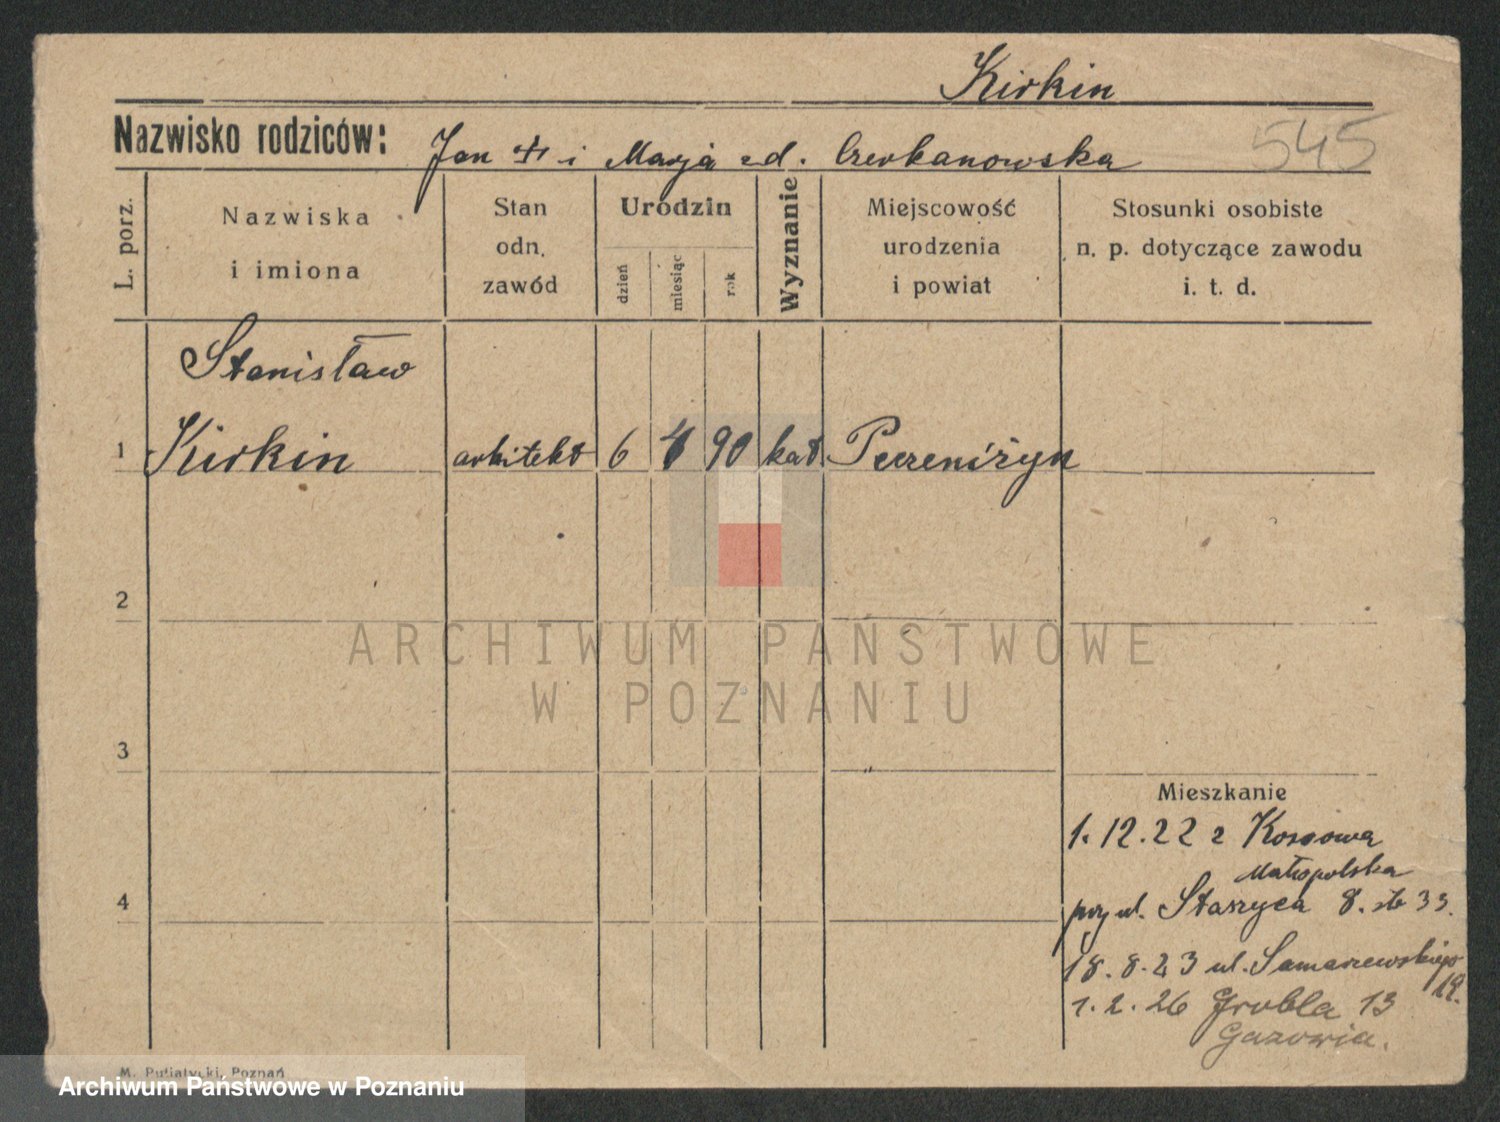 Kirkin
545
Nazwisko rodziców: Jan + i Marja zd. Czerkanowska
L. porz.
Nazwiska i imiona
Stan odn. zawód
Urodzin
dzień
miesiąc
rok
Wyznanie
Miejscowość urodzenia i powiat
Stosunki osobiste n. p. dotyczące zawodu i. t. d.
Stanisław
1 Kirkin arhitekt 6 4 90 kat. Peczeniżyn
2
3
4
Mieszkanie
1.12.22 z Kossowa
Małopolska
przy ul. Staszyca 8. 33.
18.8.23 ul. Samarzewskiego
19.
1.2.26 Grobla 13
Gazownia.
M. Putiatycki, Poznań
ARCHIWUM PAŃSTWOWE
W POZNANIU
Archiwum Państwowe w Poznaniu